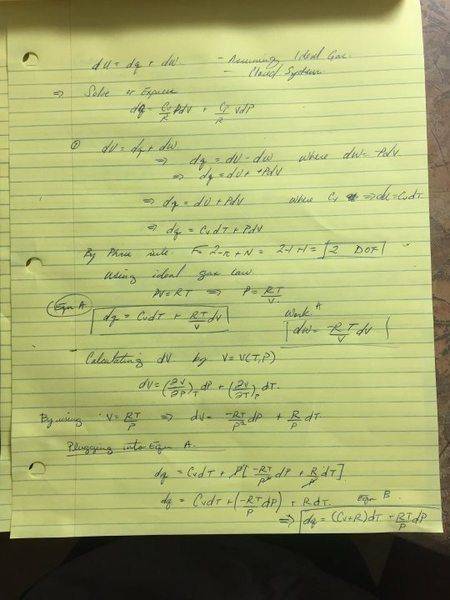 dU = dq + dW - Assuming Ideal Gas
- Closed System
⇒ Solve or Express
dq = Cv/R PdV + Cp/R VdP
① dU = dq + dW
⇒ dq = dU - dW where dW = -PdV
⇒ dq = dU + +PdV
⇒ dq = dU + PdV where Cv ⇒ du = CvdT
⇒ dq = CvdT + PdV
By Phase rule F = 2-π+N = 2-1+1 = 2 DOF
Using ideal gas law
PV = RT ⇒ P = RT/V
Eqn A dq = CvdT + RT/V dV Work A dW = -RT/V dV
Calculating dV by V = V(T,P)
dV = (∂V/∂P)T dP + (∂V/∂T)P dT.
By using V = RT/P ⇒ dV = -RT/P² dP + R/P dT
Plugging into Eqn A.
dq = CvdT + P[-RT/P² dP + R/P dT]
dq = CvdT + (-RT/P dP) + RdT Eqn B
⇒ dq = (Cv+R)dT + RT/P dP